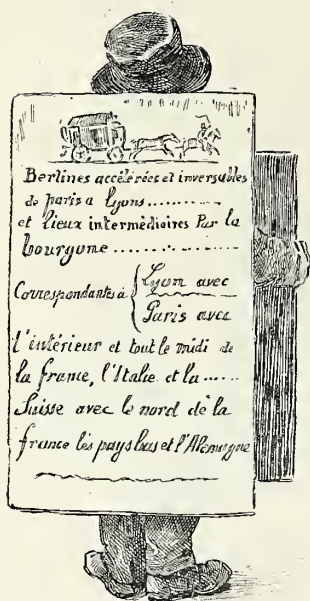 Berlines accélérées et inversables
de paris a lyons...........
et lieux intermédiaires Par la
bourgone...............
Correspondantes à { Lyon avec
Paris avec
l'intérieur et tout le midi de
la france, l'Italie et la......
Suisse avec le nord de la
france les pays bas et l'Alemagne